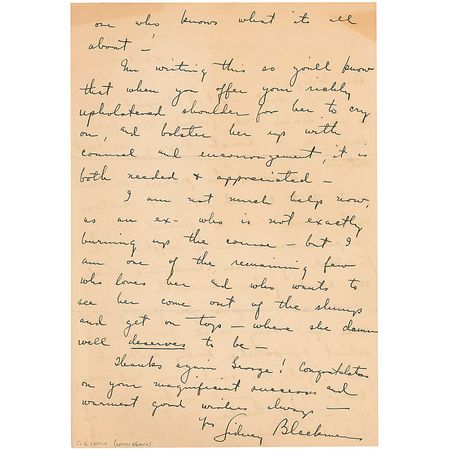 one who knows what its all
about —!
I'm writing this so you'll know
that when you offer your richly
upholstered shoulder for her to cry
on, and bolster her up with
counsel and encouragement, it is
both needed & appreciated —
I am not much help now,
as an ex- who is not exactly
burning up the course — but I
am one of the remaining few
who loves her and who wants to
see her come out of the slumps
and get on top — where she damn
well deserves to be —
Thanks again George! Congratulations
on your magnificent successes and
warmest good wishes always —
Sidney Blackmer